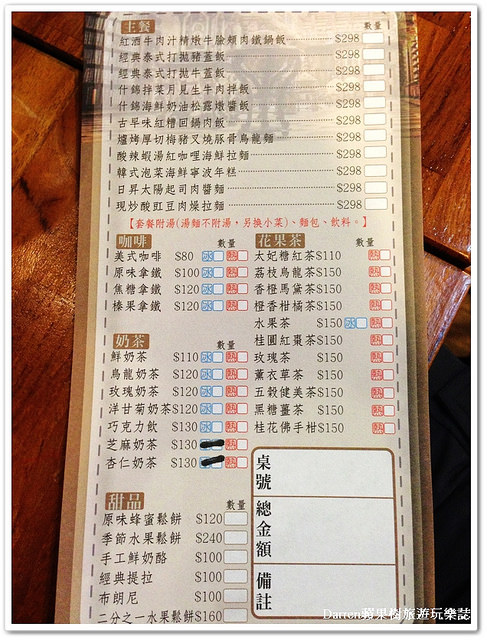 主餐 數量
紅酒牛肉汁精燉牛臉頰肉鐵鍋飯 $298
經典泰式打拋豬蓋飯 $298
經典泰式打拋牛蓋飯 $298
什錦拌菜月見生牛肉拌飯 $298
什錦海鮮奶油松露燉醬飯 $298
古早味紅糟回鍋肉飯 $298
爐烤厚切梅豬叉燒豚哥烏龍麵 $298
酸辣蝦湯紅咖哩海鮮拉麵 $298
韓式泡菜海鮮寧波年糕 $298
日昇太陽起司肉醬麵 $298
現炒酸豇豆肉燥拉麵 $298
【套餐附湯(湯麵不附湯,另換小菜)、麵包、飲料。】
咖啡 數量
美式咖啡 $80 冰 熱
原味拿鐵 $100 冰 熱
焦糖拿鐵 $120 冰 熱
榛果拿鐵 $120 冰 熱
奶茶 數量
鮮奶茶 $110 冰 熱
烏龍奶茶 $120 冰 熱
玫瑰奶茶 $120 冰 熱
洋甘菊奶茶 $120 冰 熱
巧克力飲 $130 冰 熱
芝麻奶茶 $130 熱
杏仁奶茶 $130 熱
甜品 數量
原味蜂蜜鬆餅 $120
季節水果鬆餅 $240
手工鮮奶酪 $100
經典提拉 $100
布朗尼 $100
二分之一水果鬆餅 $160
花果茶 數量
太妃糖紅茶 $110 熱
荔枝烏龍茶 $150 熱
香橙馬黛茶 $150 熱
橙香柑橘茶 $150 熱
水果茶 $150 冰 熱
桂圓紅棗茶 $150 熱
玫瑰茶 $150 熱
薰衣草茶 $150 熱
五穀健美茶 $150 熱
黑糖薑茶 $150 熱
桂花佛手柑 $150 熱
桌號
總金額
備註
Darren蘋果樹旅遊玩樂誌